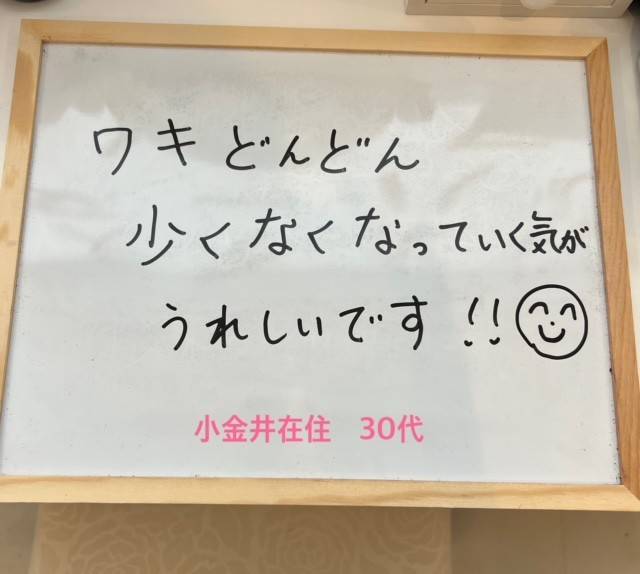 ワキどんどん
少くなくなっていく気が
うれしいです!!
小金井在住 30代